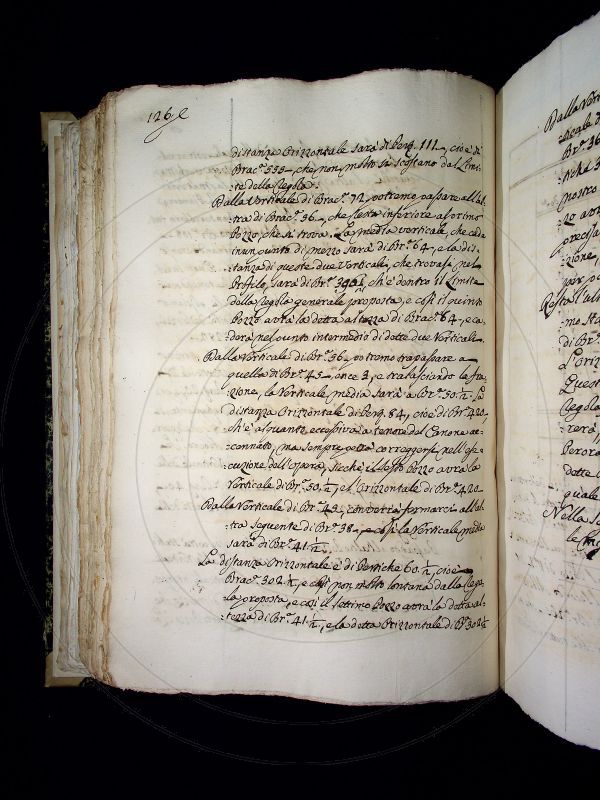 126
distanza Orizzontale sarà di Perg. 111_, cioè di
Brac. 555_, che non molto si scostano dal Limi-
te della Regola.
Dalla Verticale di Brac. 72 potremo passare all'al-
tra di Brac. 56_, che resta inferiore al primo
Pozzo, che si trova. La media verticale, che cade
in un punto di mezzo sarà di Br. 64_, e la dis-
tanza di queste due Verticali, che trovasi nel
Profilo, sarà di Br. ch'è dentro il Limite
della Regola generale proposta, e così il quinto
Pozzo avrà la detta altezza di Brac. 64_, e ca-
derà nel punto intermedio di dette due Verticali.
Dalla Verticale di Br. 56_ potremo trapassare a
quella di Br. 45_, once 3, e tralasciando la fra-
zione, la Verticale media sarà a Br. 50 ½. La
distanza Orizzontale di Perg. 84, cioè di Br. 420,
ch'è alquanto eccessiva a tenore del Canone ac-
cennato, ma sempre potrà correggersi nell'ese-
cuzione dell'Opera, sicchè il sesto Pozzo avrà la
Verticale di Br. 50 ½, e l'Orizzontale di Br. 420_
Dalla Verticale di Br. 45_ converrà fermarci all'al-
tra seguente di Br. 38_, e così la Verticale media
sarà di Br. 41 ½.
La distanza Orizzontale è di Pertiche 60 ½, cioè
Brac. 302 ½, e così non molto lontana dalla Rego-
la proposta, e così il settimo Pozzo avrà la detta al-
tezza di Br. 41 ½, e la detta Orizzontale di Br. 302 ½
Dalla Vert
ticale d
Br. 36
nostro
zo avr
precisa
zione,
Resta l'ul
mo sta
di Br.
L'Oriz
Quest
Regola
rerà
Peror
dette
quale
Nella s